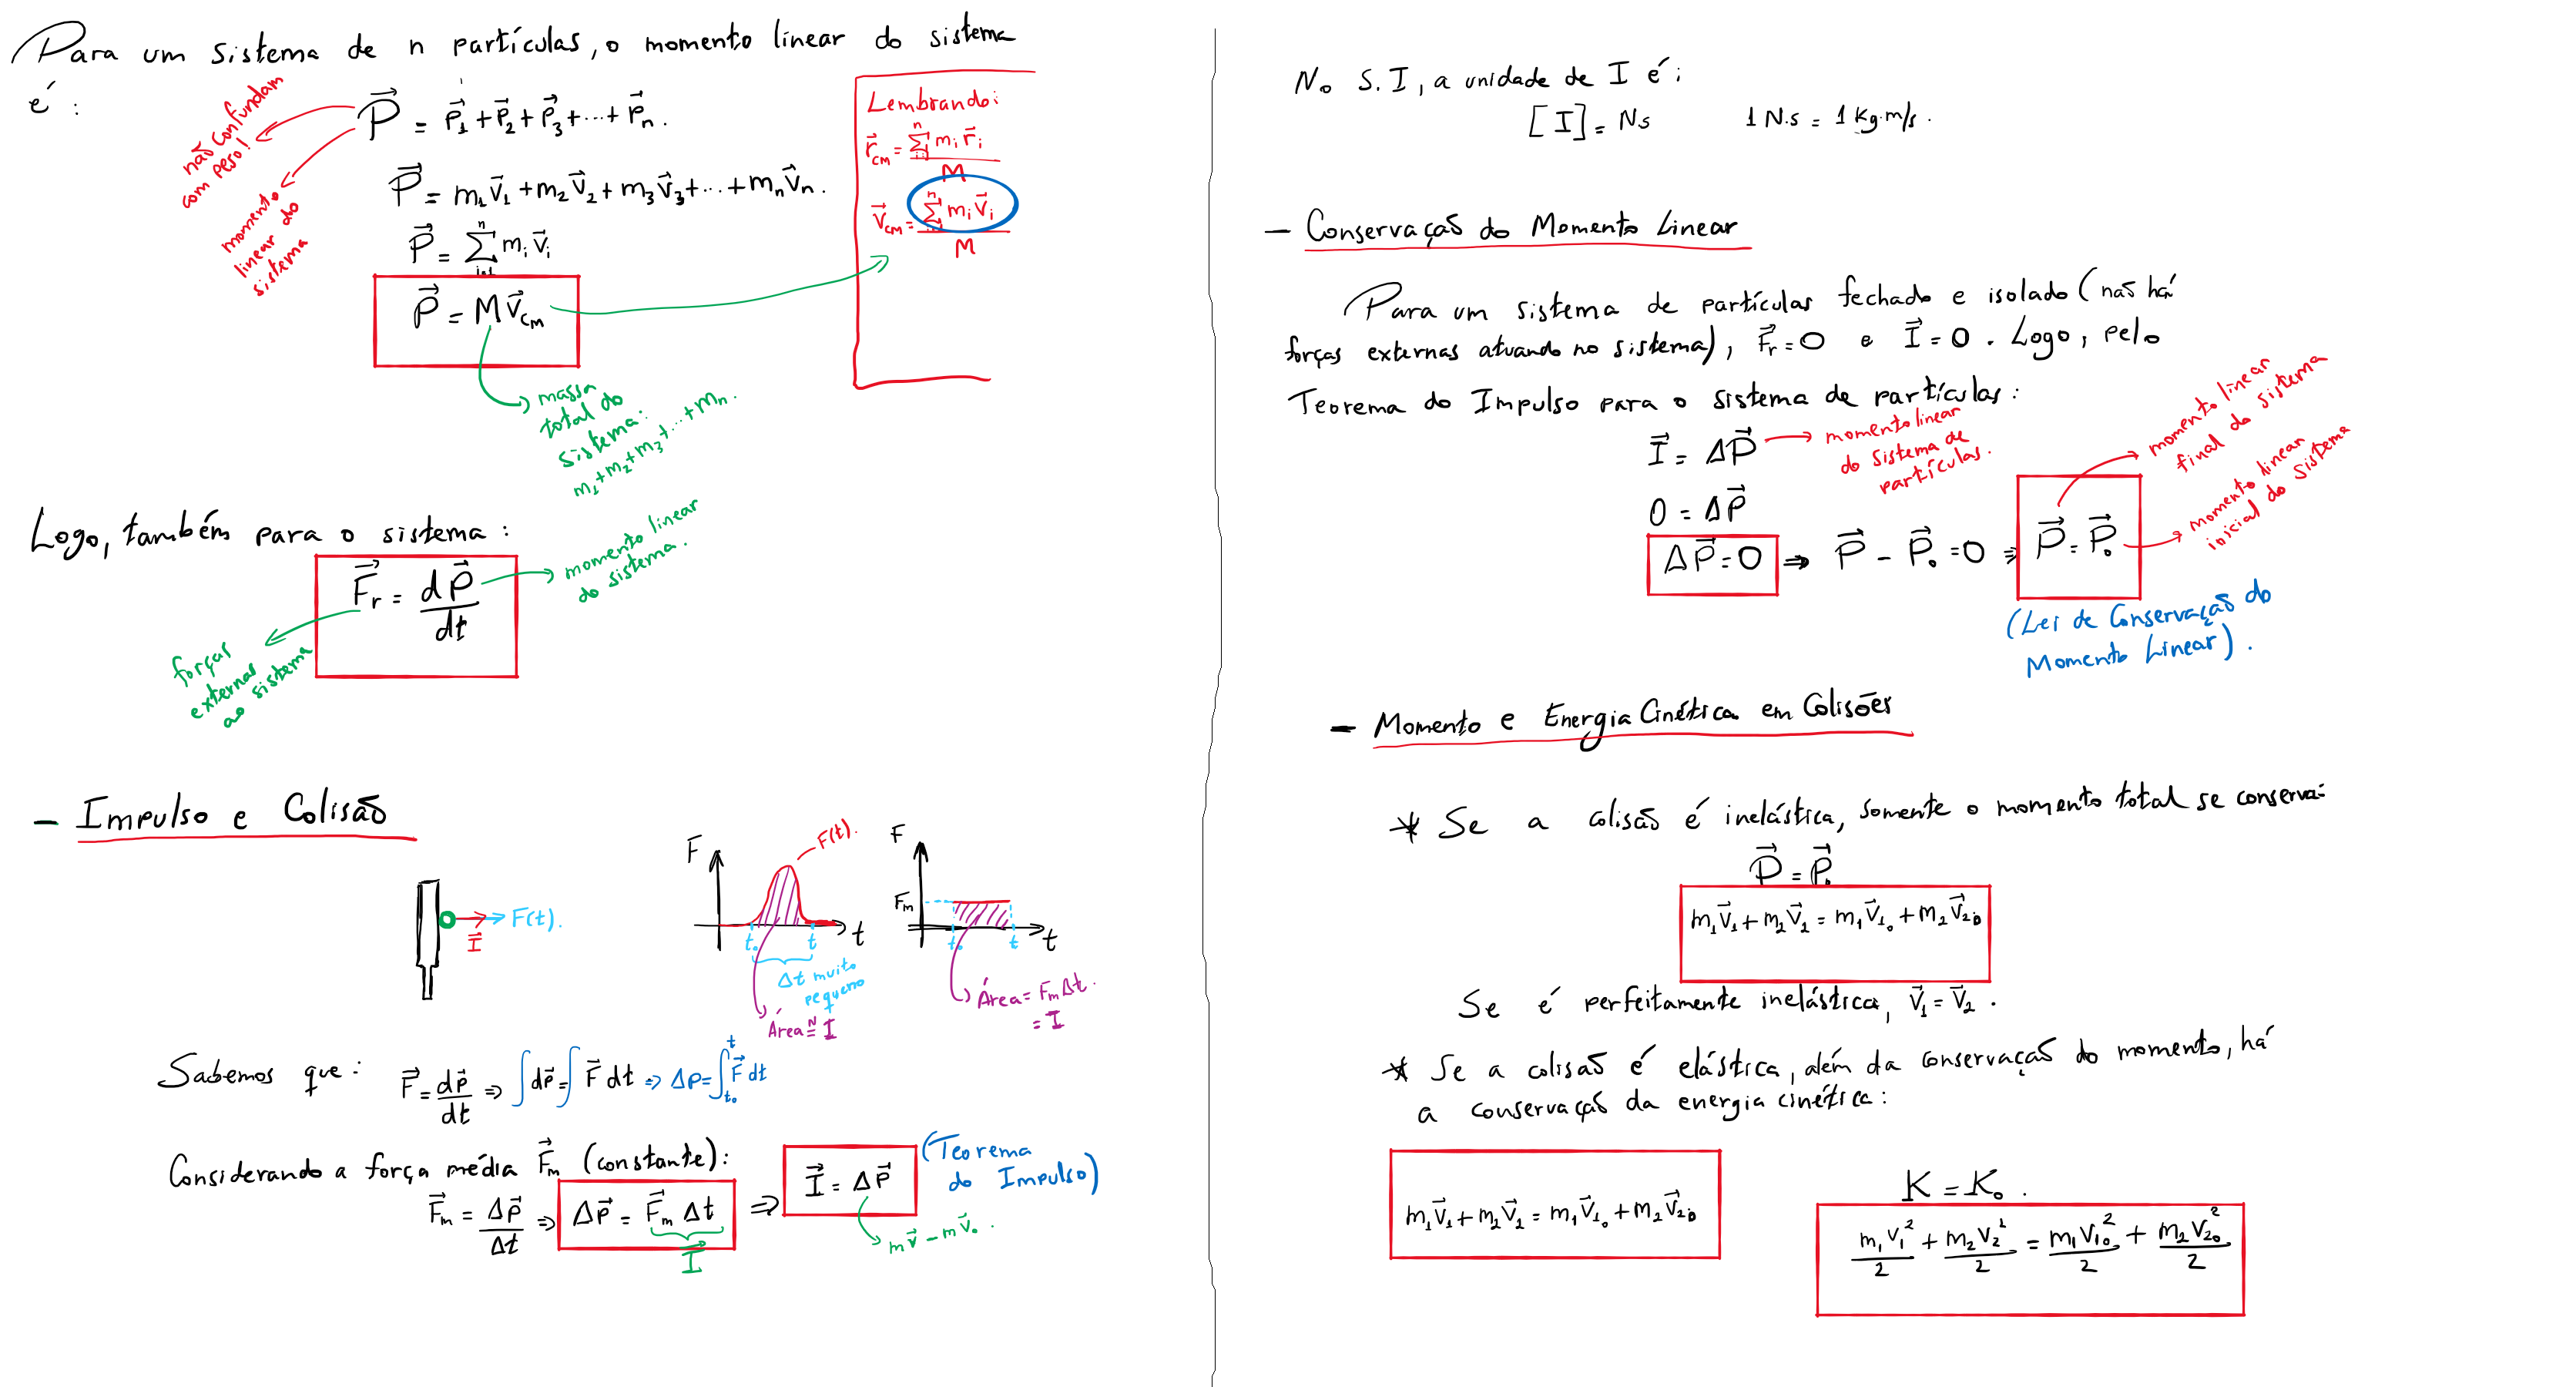 Para um sistema de n partículas, o momento linear do sistema
é:
P⃗ = p⃗₁ + p⃗₂ + p⃗₃ + ... + p⃗ₙ.
não confundam
com peso!
momento
linear do
sistema
P⃗ = m₁v⃗₁ + m₂v⃗₂ + m₃v⃗₃ + ... + mₙv⃗ₙ.
P⃗ = Σⁿᵢ₌₁ mᵢ v⃗ᵢ
P⃗ = M v⃗cm
massa
total do
sistema:
m₁+m₂+m₃+...+mₙ.
Lembrando:
r⃗cm = Σⁿᵢ₌₁ mᵢ r⃗ᵢ / M
v⃗cm = Σⁿᵢ₌₁ mᵢ v⃗ᵢ / M
Logo, também para o sistema:
F⃗r = dP⃗/dt
momento linear
do sistema.
forças
externas
ao sistema
- Impulso e Colisão
F(t).
I⃗
F
F(t).
t₀ t
t
Δt muito
pequeno
Área ≅ I
F
Fm
t₀ t
t
Área = Fm Δt.
= I
Sabemos que: F⃗ = dp⃗/dt ⇒ ∫dp⃗ = ∫F⃗ dt ⇒ Δp = ∫ₜ₀ᵗ F⃗ dt
Considerando a força média F⃗m (constante):
F⃗m = Δp⃗/Δt ⇒ Δp⃗ = F⃗m Δt ⇒ I⃗ = Δp⃗
I⃗
(Teorema
do Impulso)
mv⃗ - mv⃗₀.
No S.I, a unidade de I é:
[I] = Ns 1 N.s = 1 kg.m/s.
- Conservação do Momento Linear
Para um sistema de partículas fechado e isolado (não há
forças externas atuando no sistema), F⃗r = 0 e I⃗ = 0. Logo, pelo
Teorema do Impulso para o sistema de partículas:
I⃗ = ΔP⃗
momento linear
do sistema de
partículas.
0 = ΔP⃗
ΔP⃗ = 0 ⇒ P⃗ - P⃗₀ = 0 ⇒ P⃗ = P⃗₀
momento linear
final do sistema
momento linear
inicial do sistema
(Lei de Conservação do
Momento Linear).
- Momento e Energia Cinética em Colisões
* Se a colisão é inelástica, somente o momento total se conserva:
P⃗ = P⃗₀
m₁v⃗₁ + m₂v⃗₂ = m₁v⃗₁₀ + m₂v⃗₂₀
Se é perfeitamente inelástica, v⃗₁ = v⃗₂.
* Se a colisão é elástica, além da conservação do momento, há
a conservação da energia cinética:
m₁v⃗₁ + m₂v⃗₂ = m₁v⃗₁₀ + m₂v⃗₂₀
K = K₀.
m₁v₁²/2 + m₂v₂²/2 = m₁v₁₀²/2 + m₂v₂₀²/2